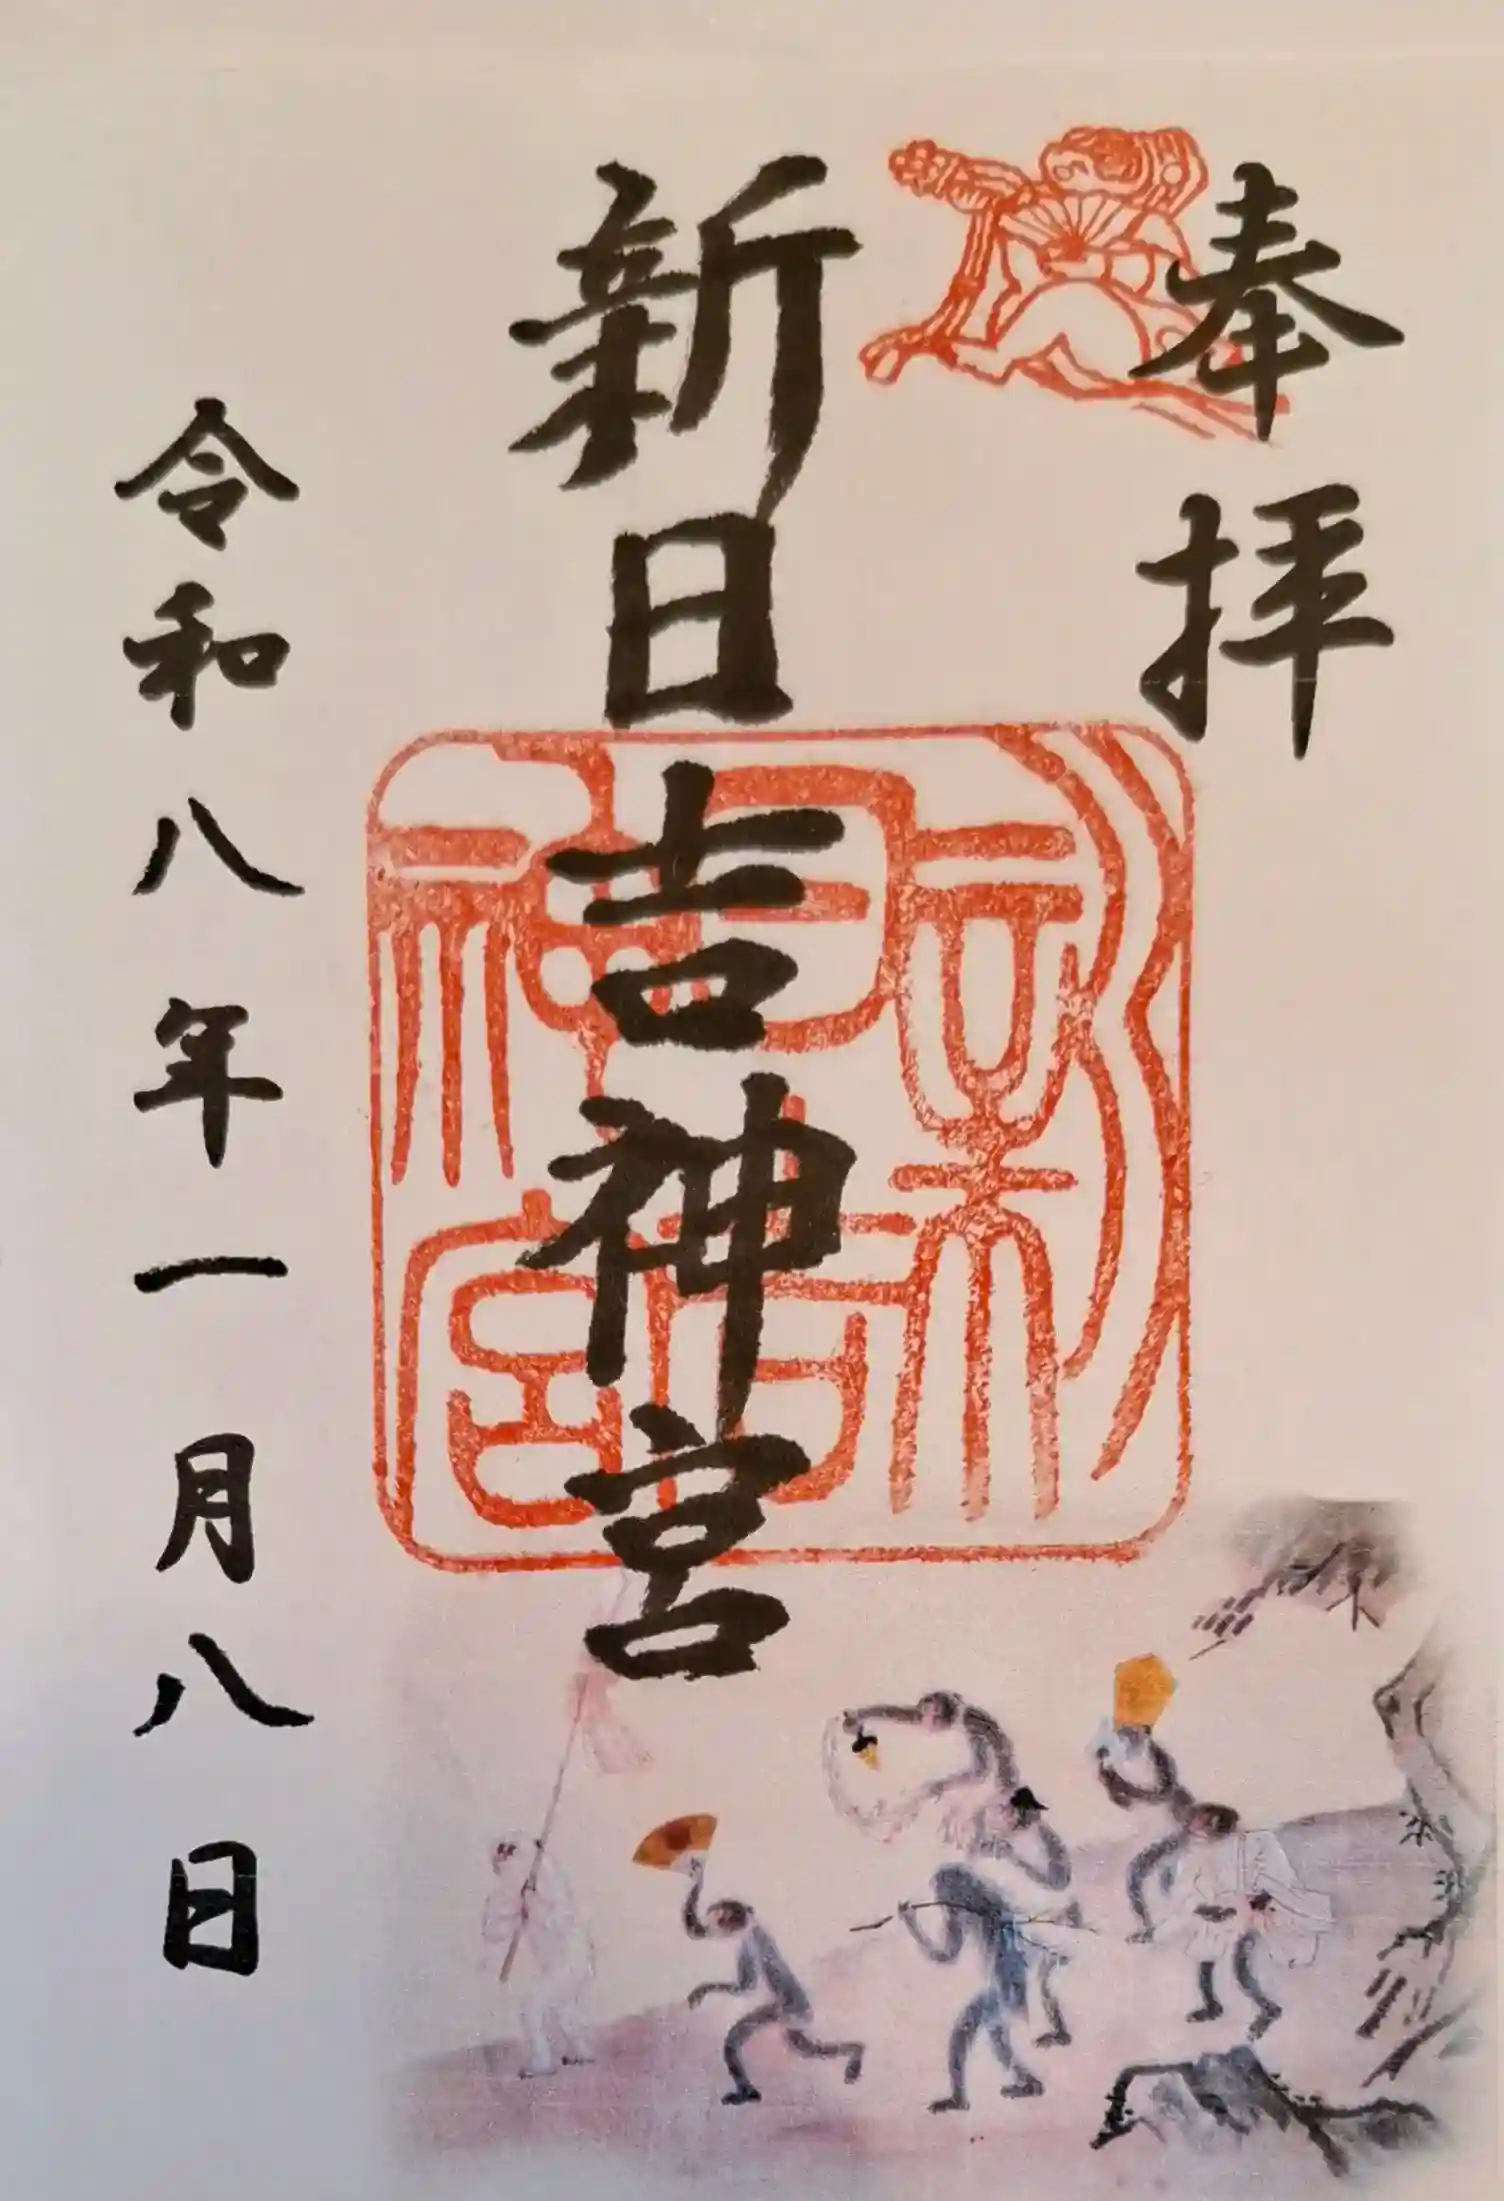 奉拝
新日吉神宮
令和八年一月八日
新日吉神宮